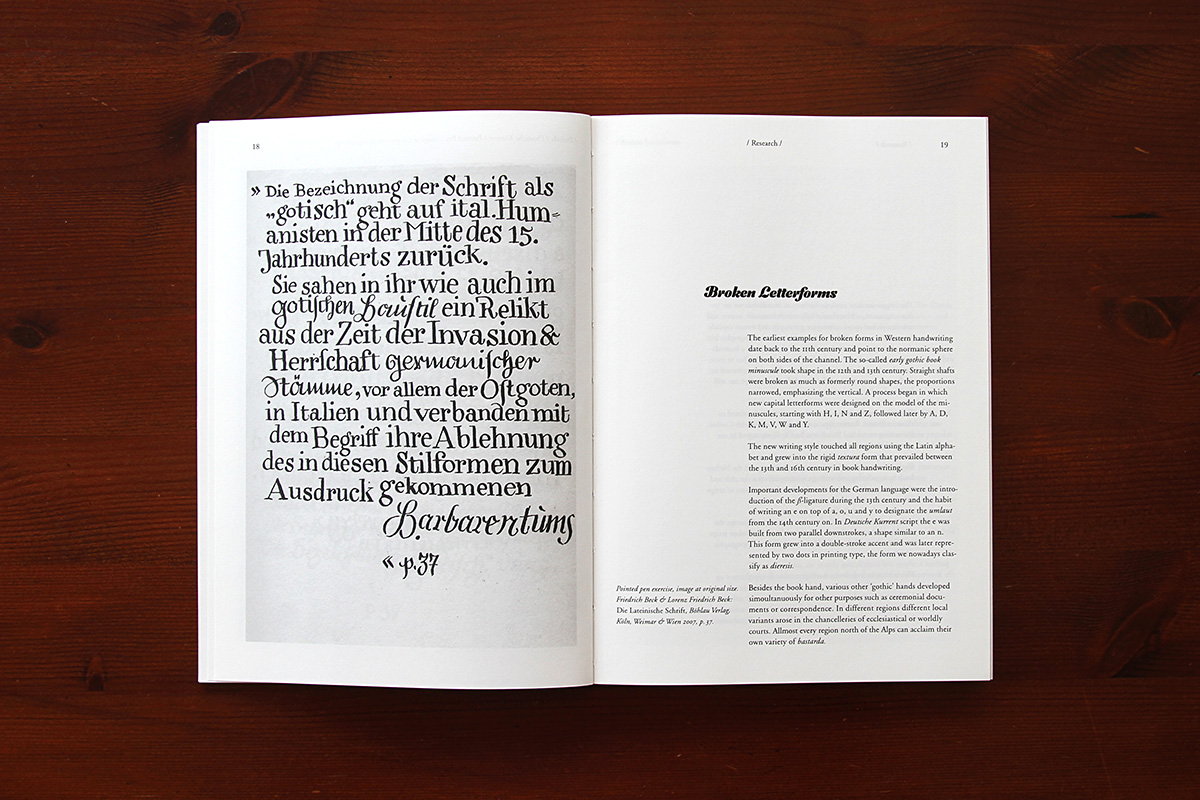 18
» Die Bezeichnung der Schrift als
„gotisch“ geht auf ital. Hum=
anisten in der Mitte des 15.
Jahrhunderts zurück.
Sie sahen in ihr wie auch im
gotiſchen Bauſtil ein Relikt
aus der Zeit der Invasion &
Herrſchaft germaniſcher
Stämme, vor allem der Oſtgoten,
in Italien und verbanden mit
dem Begriff ihre Ablehnung
des in diesen Stilformen zum
Ausdruck gekommenen
Barbarentums
« p. 37
/ Research /
19
Broken Letterforms
The earliest examples for broken forms in Western handwriting
date back to the 11th century and point to the normanic sphere
on both sides of the channel. The so-called early gothic book
minuscule took shape in the 12th and 13th century. Straight shafts
were broken as much as formerly round shapes, the proportions
narrowed, emphasizing the vertical. A process began in which
new capital letterforms were designed on the model of the mi-
nuscules, starting with H, I, N and Z, followed later by A, D,
K, M, V, W and Y.
The new writing style touched all regions using the Latin alpha-
bet and grew into the rigid textura form that prevailed between
the 13th and 16th century in book handwriting.
Important developments for the German language were the intro-
duction of the ß-ligature during the 13th century and the habit
of writing an e on top of a, o, u and y to designate the umlaut
from the 14th century on. In Deutsche Kurrent script the e was
built from two parallel downstrokes, a shape similar to an n.
This form grew into a double-stroke accent and was later repre-
sented by two dots in printing type, the form we nowadays clas-
sify as dieresis.
Besides the book hand, various other 'gothic' hands developed
simoultanuously for other purposes such as ceremonial docu-
ments or correspondence. In different regions different local
variants arose in the chancelleries of ecclesiastical or worldly
courts. Allmost every region north of the Alps can acclaim their
own variety of bastarda.
Pointed pen exercise, image at original size.
Friedrich Bock & Lorenz Friedrich Beck:
Die Lateinische Schrift, Böhlau Verlag,
Köln, Weimar & Wien 2007, p. 37.